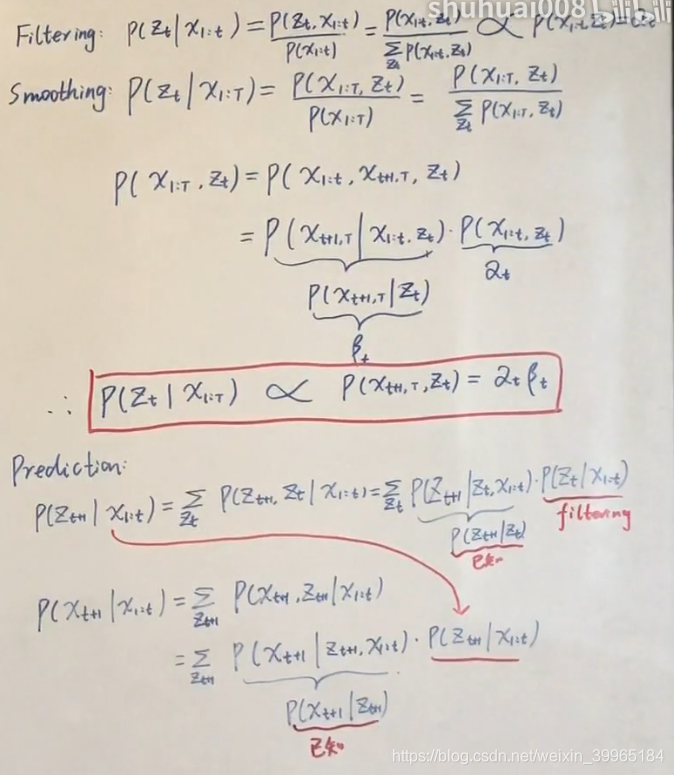 shuhuai008
Filtering: P(Z_t | x_{1:t}) = P(Z_t, x_{1:t}) / P(x_{1:t}) = P(x_{1:t}, Z_t) / Σ_{Z_t} P(x_{1:t}, Z_t) ∝ P(x_{1:t}, Z_t) = α_t
Smoothing: P(Z_t | x_{1:T}) = P(x_{1:T}, Z_t) / P(x_{1:T}) = P(x_{1:T}, Z_t) / Σ_{Z_t} P(x_{1:T}, Z_t)
P(x_{1:T}, Z_t) = P(x_{1:t}, x_{t+1,T}, Z_t)
= P(x_{t+1,T} | x_{1:t}, Z_t) · P(x_{1:t}, Z_t)
α_t
P(x_{t+1,T} | Z_t)
β_t
∴ P(Z_t | x_{1:T}) ∝ P(x_{t+1,T}, Z_t) = α_t β_t
Prediction:
P(Z_{t+1} | x_{1:t}) = Σ_{Z_t} P(Z_{t+1}, Z_t | x_{1:t}) = Σ_{Z_t} P(Z_{t+1} | Z_t, x_{1:t}) · P(Z_t | x_{1:t})
filtering
P(Z_{t+1} | Z_t)
已知
P(x_{t+1} | x_{1:t}) = Σ_{Z_{t+1}} P(x_{t+1}, Z_{t+1} | x_{1:t})
= Σ_{Z_{t+1}} P(x_{t+1} | Z_{t+1}, x_{1:t}) · P(Z_{t+1} | x_{1:t})
P(x_{t+1} | Z_{t+1})
已知
https://blog.csdn.net/weixin_39965184